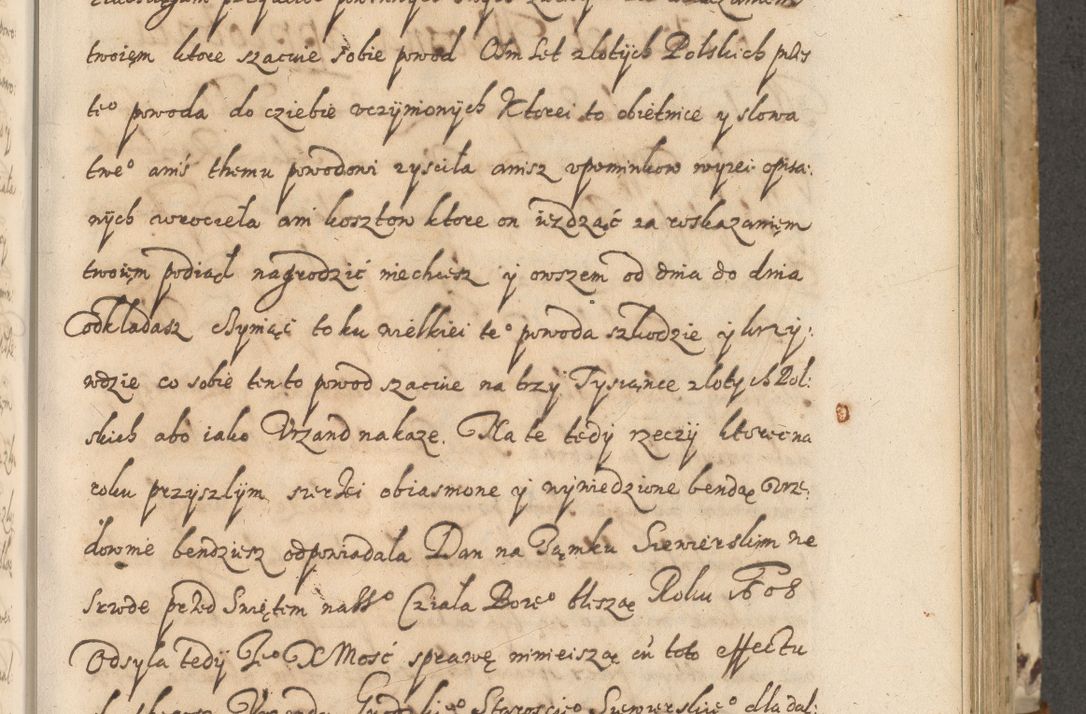 twoięm ktore szacuie sobie powod Ośm set złotych Polskich przes
te° powoda do cziebie vczynionych Ktorei to obietnice y słowa
twe° aniś themu powodowi zysciła anisz vpominkow wyzei opisa:
nych wrocieła ani kosztow ktore on ieżdząć za roskazaniem
twoięm podiął nagrodzić niechcesz y owszem od dnia do dnia
odkładasz czyniąć to ku wielkiei te° powoda szkodzie y krzy:
wdzie co sobie ten to powod szacuie na trzy Tysiąnce złotych Pol:
skich abo iako Vrzand nakaze. Na te tedy rzeczy ktore na
roku przyszłym szerzei obiasnione y wywiedzione bendąę Vrzę:
downie bendziesz odpowiadała Dan na Zamku Siewierskim we
srzode przed Swiętem nabl° Cziała Boze° bliszaę Roku 1608
Odsyła tedy Je° X Mosć sprawę ninieiszaę cu toto effectu